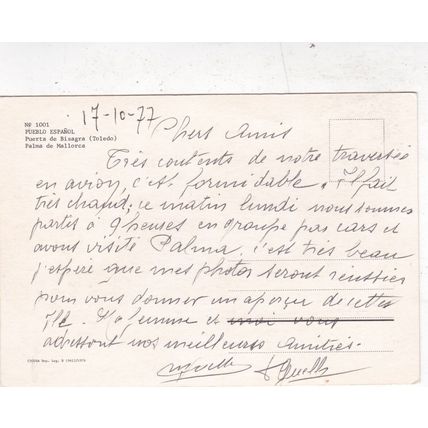 17-10-77
Nº 1001
PUEBLO ESPAÑOL
Puerta de Bisagra (Toledo)
Palma de Mallorca
Chers Amis
Très contents de notre traversée
en avion, c'est formidable. Il fait
très chaud; ce matin lundi nous sommes
partis à 9 heures en groupe par cars et
avons visité Palma, c'est très beau
j'espère que mes photos seront réussies
pour vous donner un aperçu de cette
Ile. Ma femme et moi vous
adressons nos meilleures amitiés.